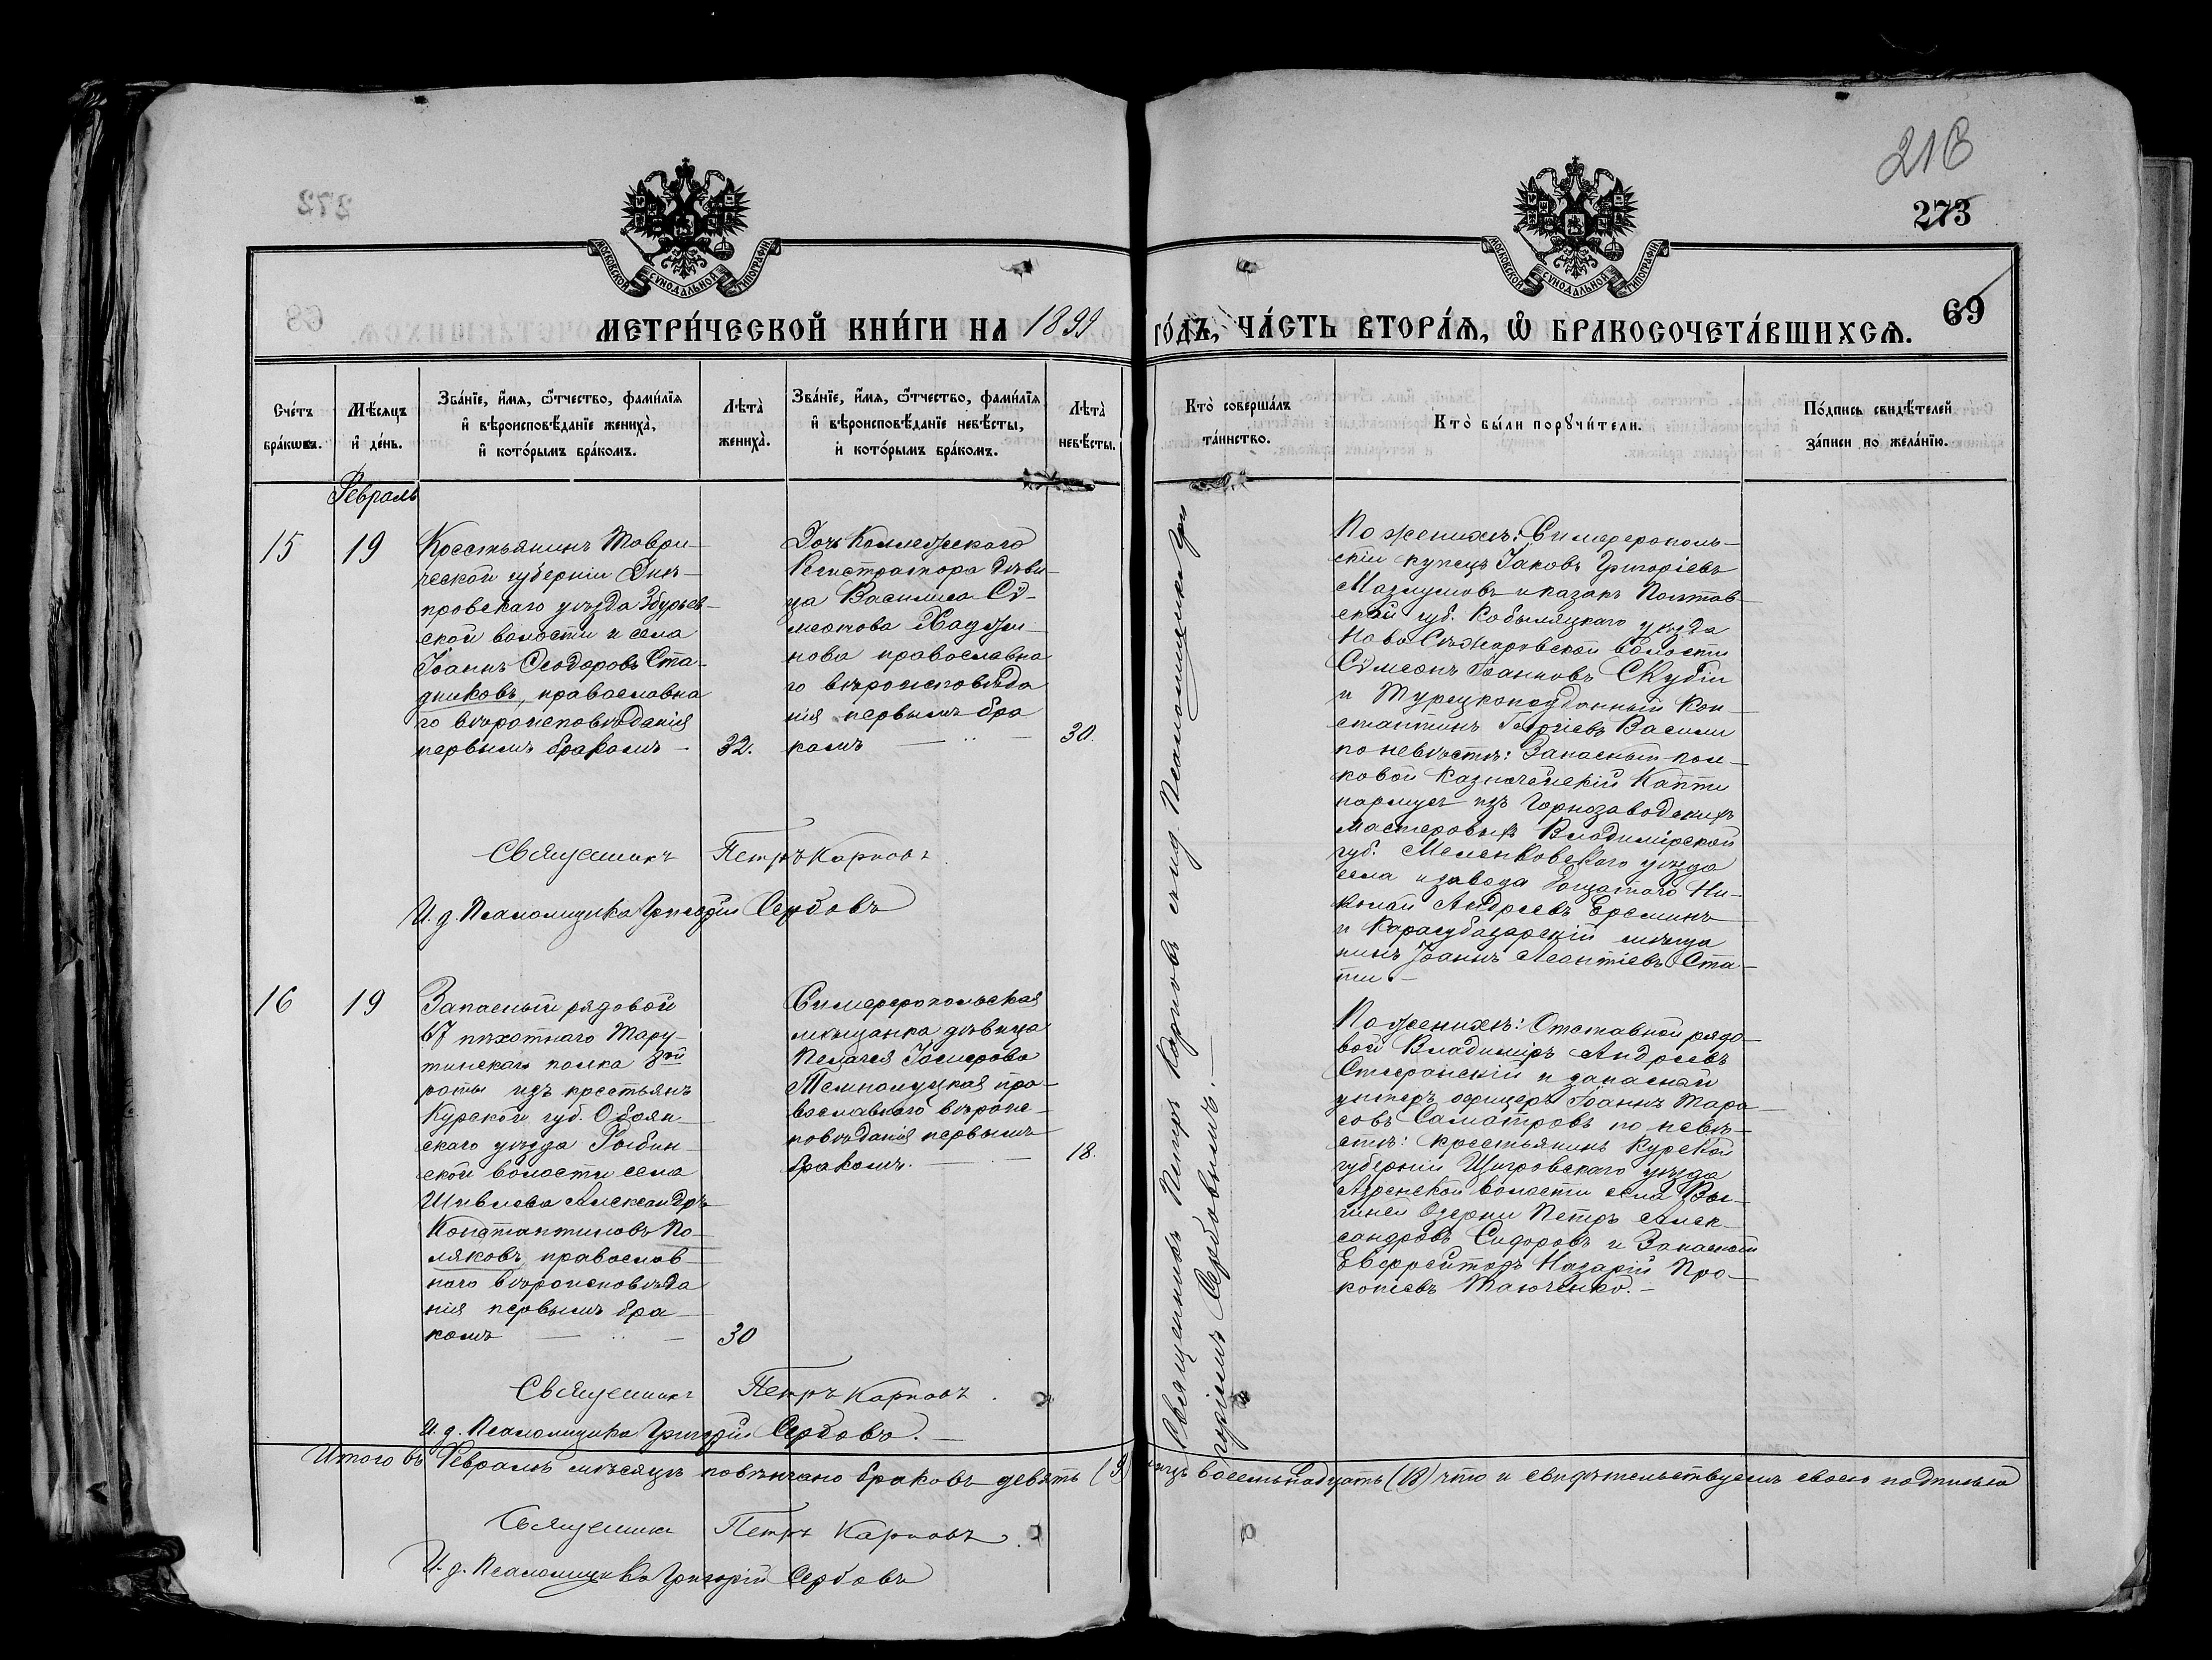 216
273
69
МОСКОВСКОЙ СѴНОДАЛЬНОЙ ТИПОГРАФІИ
МОСКОВСКОЙ СѴНОДАЛЬНОЙ ТИПОГРАФІИ
МЕТРИ́ЧЕСКОЙ КНИ́ГИ НА 1899 ГО́ДЪ, ЧА́СТЬ ВТОРА́Ѧ, Ѽ БРАКОСОЧЕТА́ВШИХСѦ.
Сче́тъ бра́кѡвъ.
Мѣ́сѧцъ и҆ де́нь.
Зва́нїе, и҆́мѧ, ѻ҆́тчество, фами́лїѧ и҆ вѣроисповѣ́данїе жениха̀, и҆ кото́рымъ бра́комъ.
Лѣта̀ жениха̀.
Зва́нїе, и҆́мѧ, ѻ҆́тчество, фами́лїѧ и҆ вѣроисповѣ́данїе невѣ́сты, и҆ кото́рымъ бра́комъ.
Лѣта̀ невѣ́сты.
Кто̀ соверша́лъ та́инство.
Кто̀ бы́ли порꙋчи́тели.
По́дпись свидѣ́телей за́писи по жела́нїю.
Февраль
15
19
Крестьянинъ Таври-
ческой губерніи Днѣ-
провскаго уѣзда Збурьев-
ской волости и села
Іоаннъ Ѳеодоровъ Ста-
дниковъ, православна
го вѣроисповѣданія
первымъ бракомъ -
32.
Дочь Коллежскаго
Регистратора дѣви
ца Василиса Сѵ-
меонова Хаджи-
нова православна
го вѣроисповѣда
нія первымъ бра
комъ
30.
По женихѣ: Симферополь-
скій купецъ Іаковъ Григоріевъ
Мазлумовъ и казакъ Полтав-
ской губ. Кобыляцкаго уѣзда
Ново Сѣнжаровской волости
Сѵмеонъ Іоанновъ Скубій
и Турецкоподданный Кон-
стантинъ Георгіевъ Васили
по невѣстѣ: Запасный пол-
ковой Казначейскій Капте
нармусъ изъ Горнозаводскихъ
мастеровыхъ Владимірской
губ. Меленковскаго уѣзда
села и завода Ни-
колай Андреевъ Ереминъ
и Карасубазарскій мѣща
нинъ Іоаннъ Леонтіевъ Ста-
ти. -
Священникъ Петръ Карповъ.
И. д. Псаломщика Григорій Сербовъ
16
19
Запасный рядовой
67 пѣхотнаго Тару-
тинскаго полка 3ой
роты изъ крестьянъ
Курской губ. Обоян-
скаго уѣзда Рыбин-
ской волости села
Шевелева Александръ
Константиновъ По-
ляковъ, православ-
наго вѣроисповѣда
нія первымъ бра-
комъ
30
Симферопольская
мѣщанка дѣвица
Пелагея
пра-
вославнаго вѣроис-
повѣданія первымъ
бракомъ.
18.
По женихѣ: Отставной рядо-
вой Владиміръ Андреевъ
и запасный
унтеръ офицеръ Іоаннъ Тара
совъ по невѣ-
стѣ: крестьянинъ Курской
губерніи Щигровскаго уѣзда
волости села
Озерны Петръ Алек-
сандровъ Сидоровъ и Запасный
Ефрейторъ Назарій Про-
копіевъ
Священникъ Петръ Карповъ съ и. д. Псаломщика Гри
горіемъ Сербовымъ. -
Священникъ Петръ Карповъ.
И. д. Псаломщика Григорій Сербовъ. -
Итого въ Февралѣ мѣсяцѣ повѣнчано браковъ девять (9) лицъ восемьнадцать (18) что и свидѣтельствуемъ своею подписью
Священникъ Петръ Карповъ.
И. д. Псаломщика Григорій Сербовъ